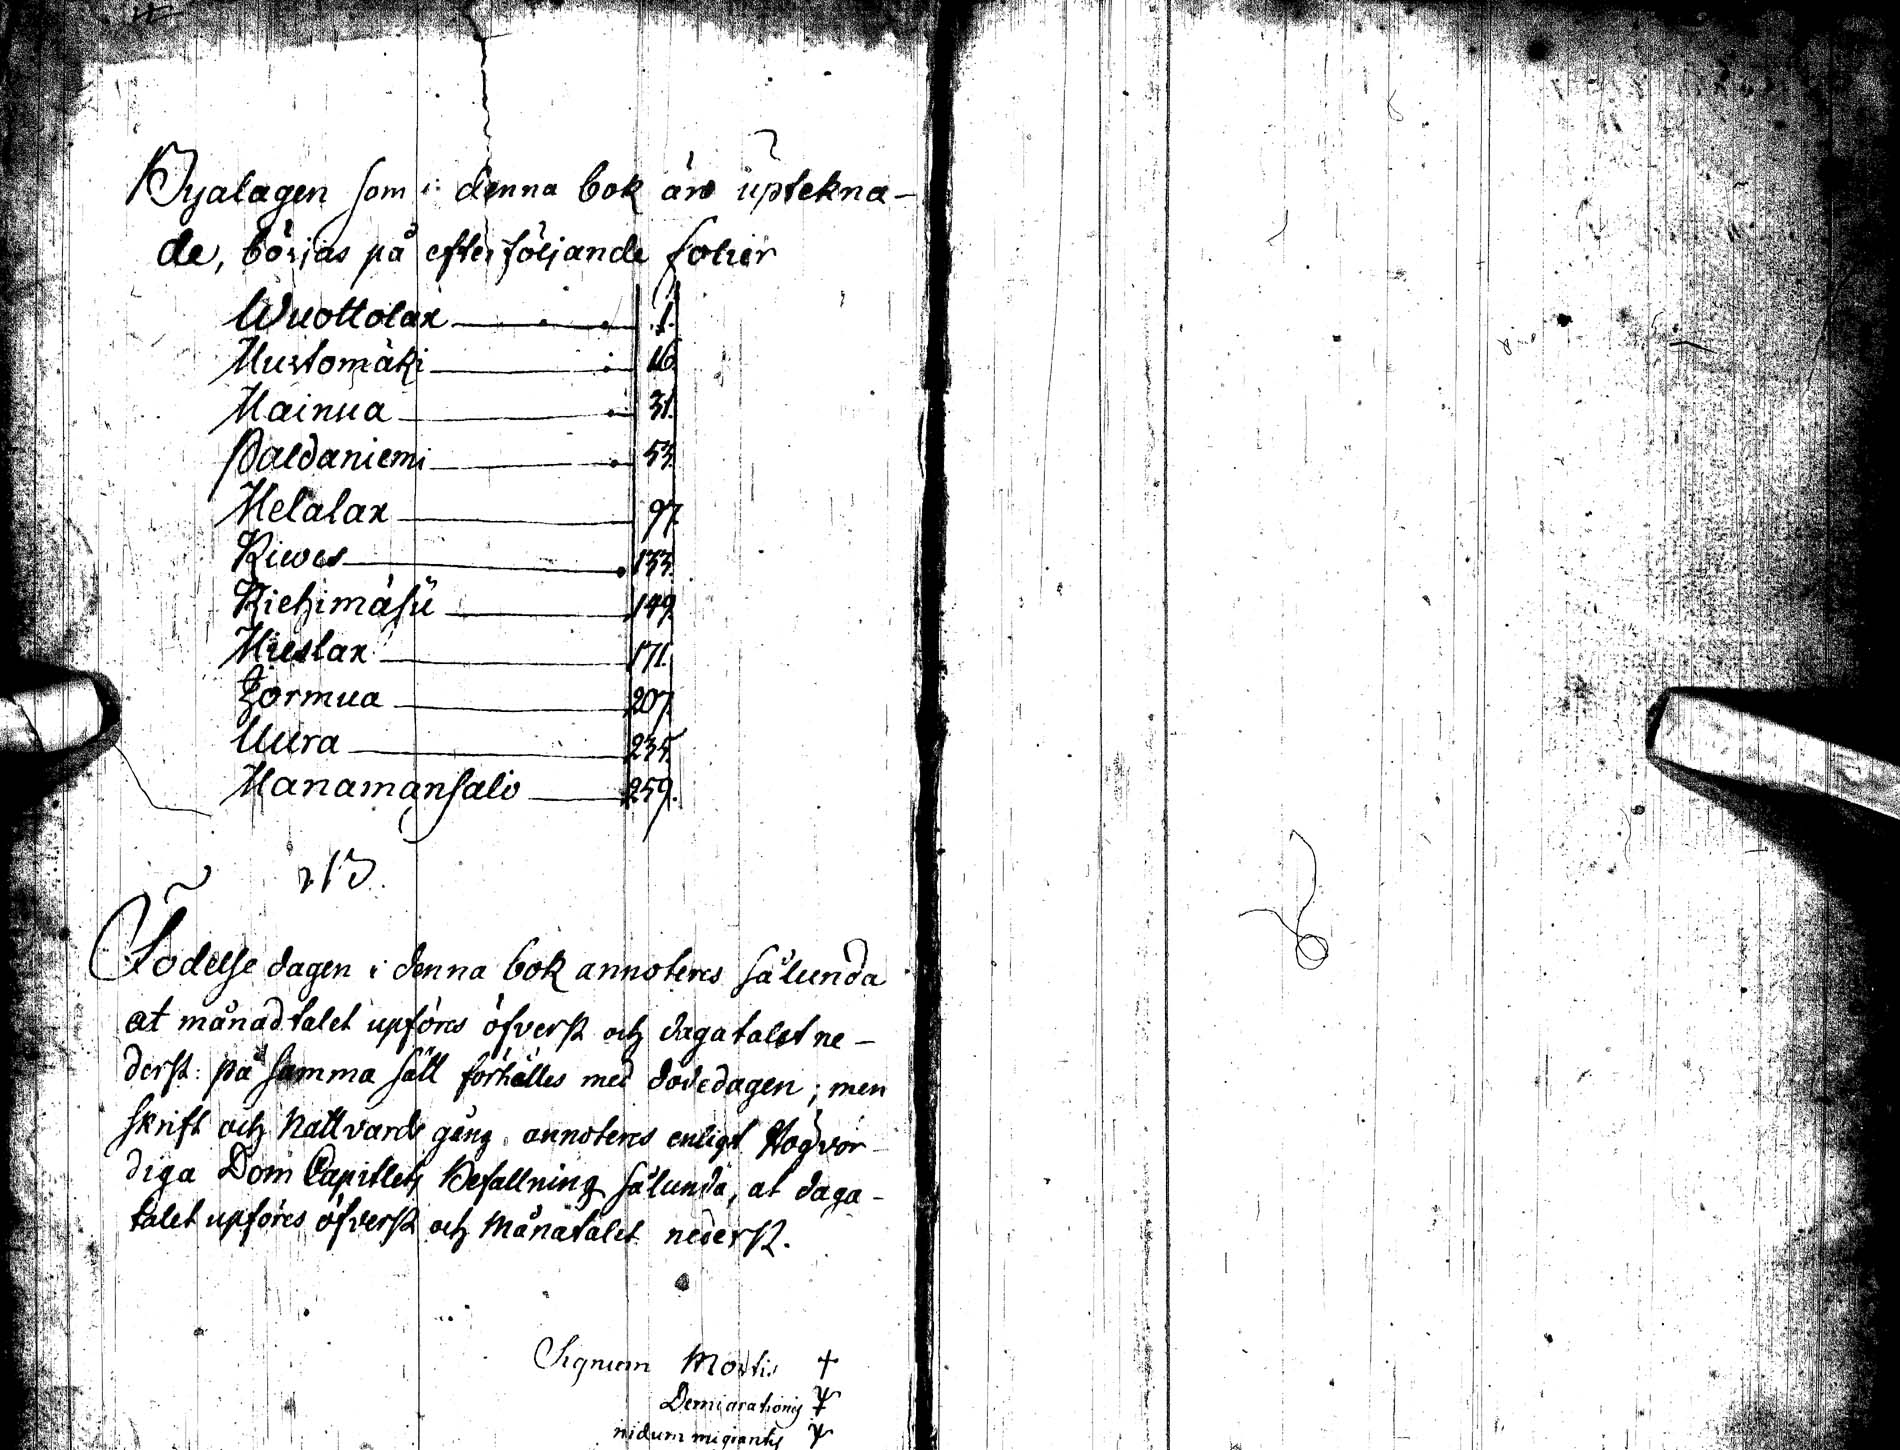 Byalagen som i denna bok äro uptekna-
de, börjas på efterföljande folier
Wuottolax 1.
Mustomäki 16.
Mainua 31.
Paldaniemi 53.
Melalax 97.
Kiewes 133.
Kiehimäsü 149.
Mieslax 171.
Jormua 207.
Uura 235.
Manamansalo 259.
NB.
Födelse dagen i denna bok annoteres sålunda
at månadtalet upföres öfverst och dagatalet ne-
derst: på samma sätt förhålles med dödedagen; men
skrift och Nattvards gång annoteres enligt Högvör-
diga Dom Capitlets Befallning sålunda, at daga-
talet upföres öfverst och Månatalet nederst.
Signum Mortis †
Demigrationis
nidum migrantis